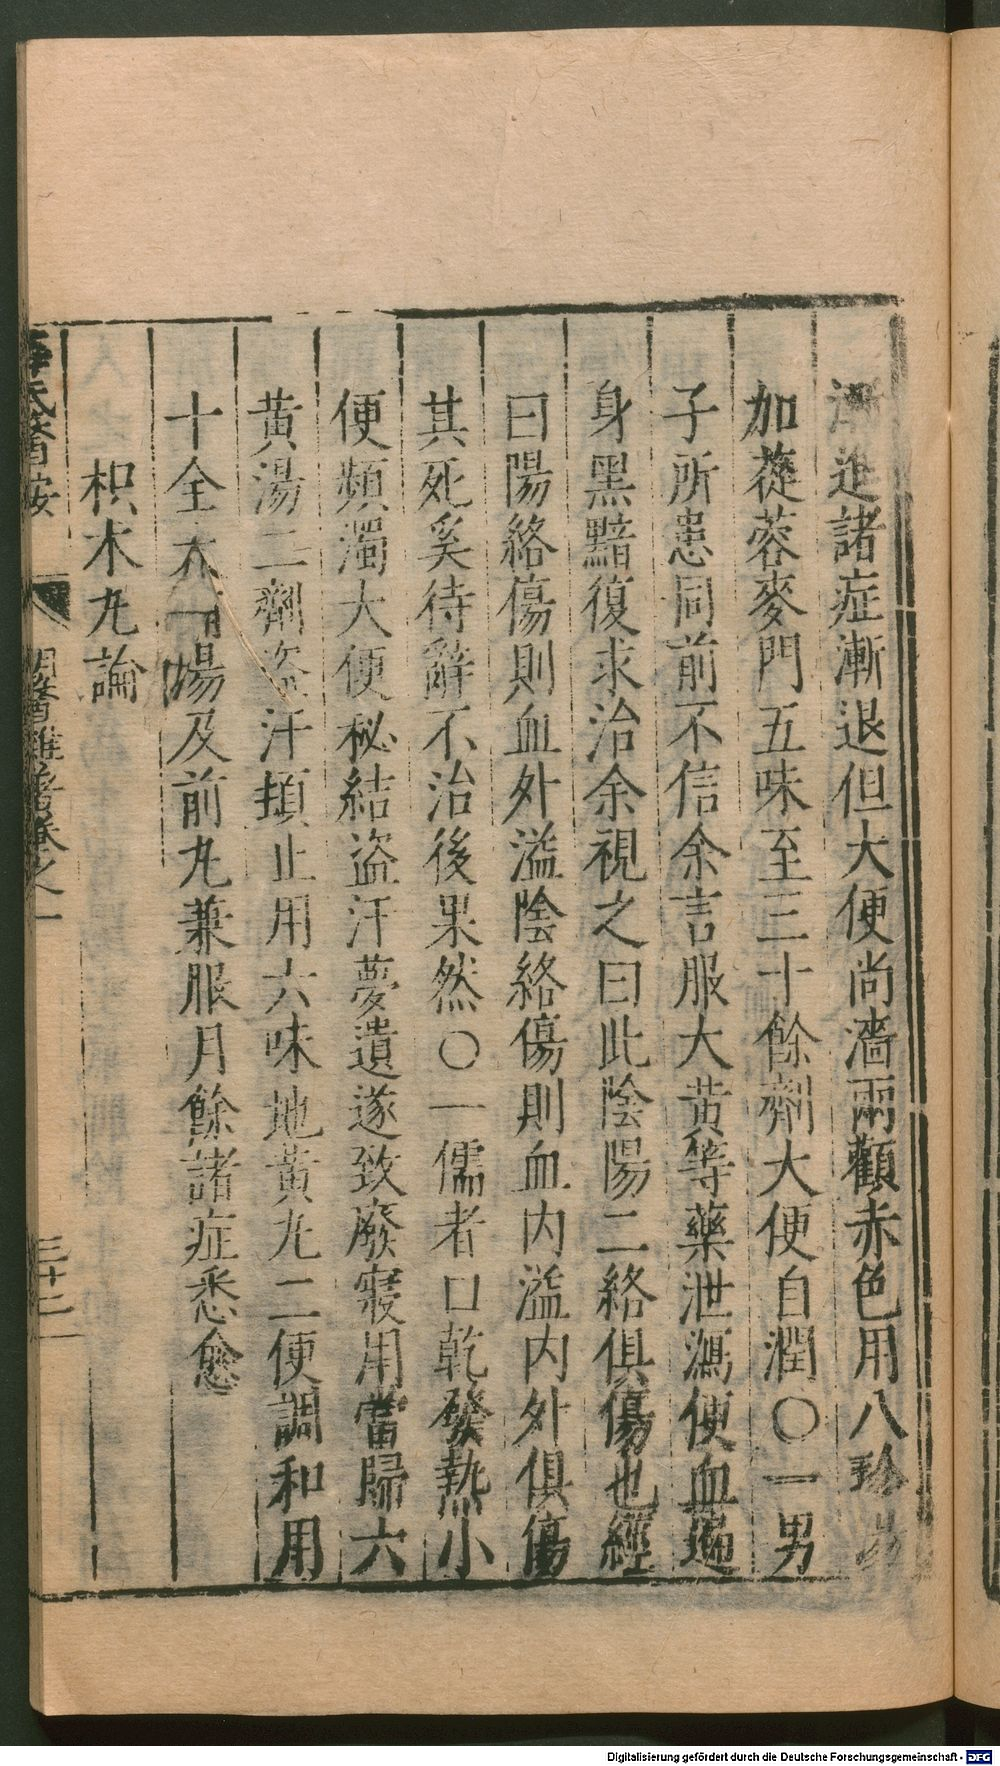 漸進諸症漸退但大便尚濇兩顴赤色用八珍湯
加蓯蓉麥門五味至三十餘劑大便自潤○一男
子所患同前不信余言服大黄等藥泄瀉便血遍
身黑黯復求治余視之曰此陰陽二絡俱傷也經
曰陽絡傷則血外溢陰絡傷則血内溢内外俱傷
其死奚待辭不治後果然○一儒者口乾發熱小
便頻濁大便秘結盜汗夢遺遂致廢寢用當歸六
黄湯二劑盜汗頓止用六味地黄丸二便調和用
十全大補湯及前丸兼服月餘諸症悉愈
枳朮丸論
薛氏醫按
明醫雜著卷之一
三十二
Digitalisierung gefördert durch die Deutsche Forschungsgemeinschaft - DFG